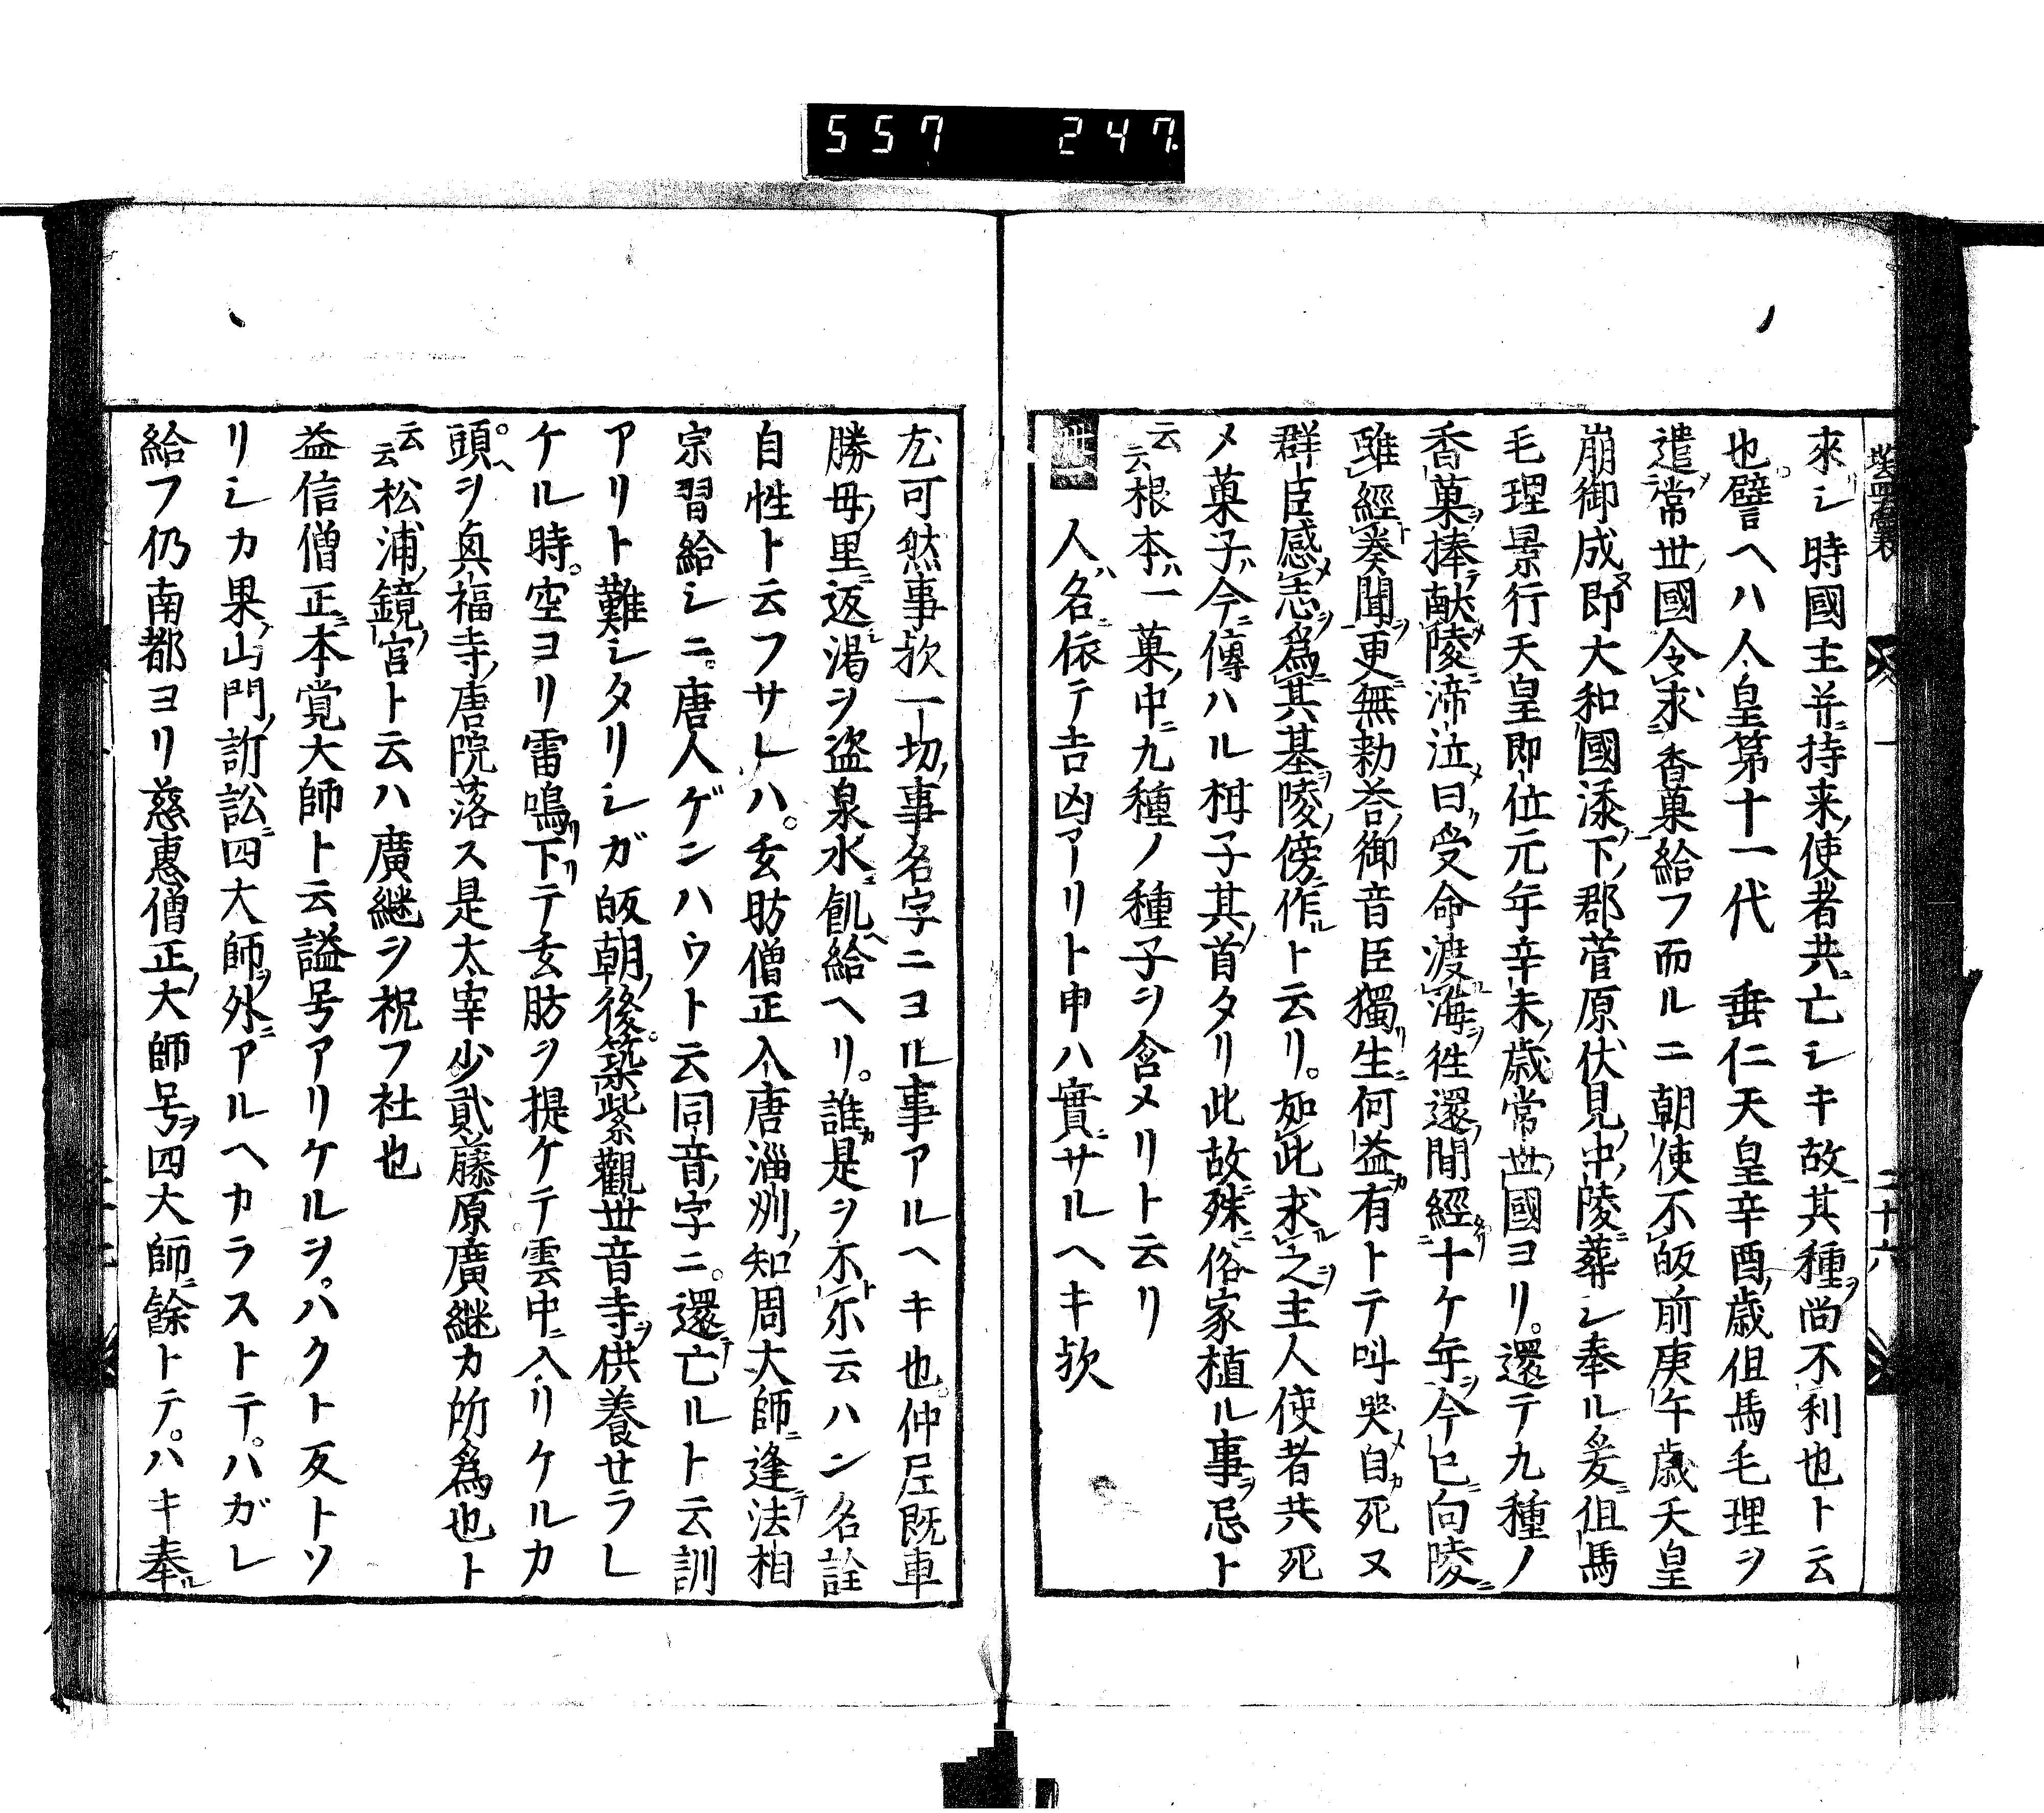 557 247.
來シ時國主并ニ持来ノ使者共ニ亡シキ故ニ其種ヲ尚不利也ト云
也譬ヘハ人皇第十一代 垂仁天皇辛酉ノ歳但馬毛理ヲ
遣ハ常世ノ國令求ニ香菓給フ而ルニ朝使不皈前庚午歳天皇
崩御成ヌ即大和國添下ノ郡菅原伏見ノ中ノ陵ニ葬シ奉ル爰ニ但馬
毛理景行天皇即位元年辛未ノ歳常世ノ國ヨリ還テ九種ノ
香菓ヲ捧テ献陵ニ渧泣メ曰ク受命渡海ヲ徃還ノ間經十ケ年ヲ今已ニ向陵ニ
雖經奏聞ヲ更ニ無勅荅ノ御音臣獨リ生ニ何ノ益カ有トテ呌哭メ自カ死ヌ
群臣感志ヲ為其基陵ヲ傍ニ作ルト云リ如此求之ヲ主人使者共死
メ菓子ハ今ニ傳ハル柑子其ノ首タリ此故ニ殊ニ俗家植ル事ヲ忌ト
云云根本ハ一菓ノ中ニ九種ノ種子ヲ含メリト云リ
人ハ名ニ依テ吉凶アリト申ハ實ニサルヘキ欤
尤可然事欤一切ノ事名字ニヨル事アルヘキ也仲尼既車
勝母ノ里ニ返シ渇ヲ盗泉水ニ飢給ヘリ誰カ是ヲ不尓ト云ハン名詮
自性ト云フサレハ玄肪僧正入唐淄州ノ知周大師ニ逢テ法相
宗習給シニ唐人ゲンハウト云同音ノ字ニ還テ亡ルト云訓
アリト難シタリシガ皈朝ノ後筑紫觀世音寺ヲ供養せラレ
ケル時空ヨリ雷鳴リ下リテ玄肪ヲ提ケテ雲中ニ入リケルカ
頭ヘヲ奥福寺ノ唐院落ス是太宰少貳藤原廣継カ所為也ト
云云松浦ノ鏡ノ宮ト云ハ廣継ヲ祝フ社也
益信僧正ニ本覚大師ト云謚号アリケルヲハクト反トソ
リシカ果ノ山門ノ訴訟ニ四大師ノ外ニアルヘカラストテハガレ
給フ仍南都ヨリ慈恵僧正ノ大師号ヲ四大師ニ餘トテハキ奉ル